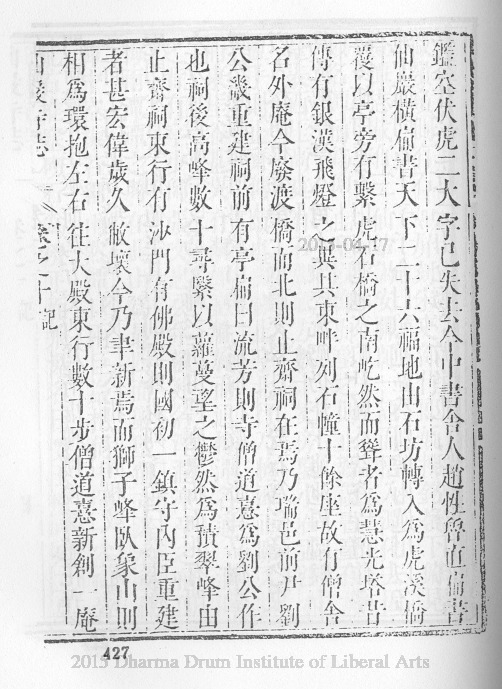 鑑空伏虎二大字已失去今中書舍人趙性魯直扁書
仙巖橫扁書天下二十六福地由石坊轉入為虎溪橋
覆以亭旁有繫虎石橋之南屹然而聳者為慧光塔昔
傳有銀漢飛燈之異其東畔列石幢十餘座故有僧舍
名外庵今廢渡橋而北則止齋祠在焉乃瑞邑前尹劉
公畿重建祠前有亭扁曰流芳則寺僧道憙為劉公作
也祠後高峰數十尋繫以蘿蔓望之鬱然為積翠峰由
止齋祠東行有沙門有佛殿則國初一鎮守內臣重建
者甚宏偉歲久敝壞今乃聿新焉而獅子峰臥象山則
相為環抱左右往大殿東行數十步僧道憙新創一庵
仙巖寺志 卷之十 記
427
2015 Dharma Drum Institute of Liberal Arts